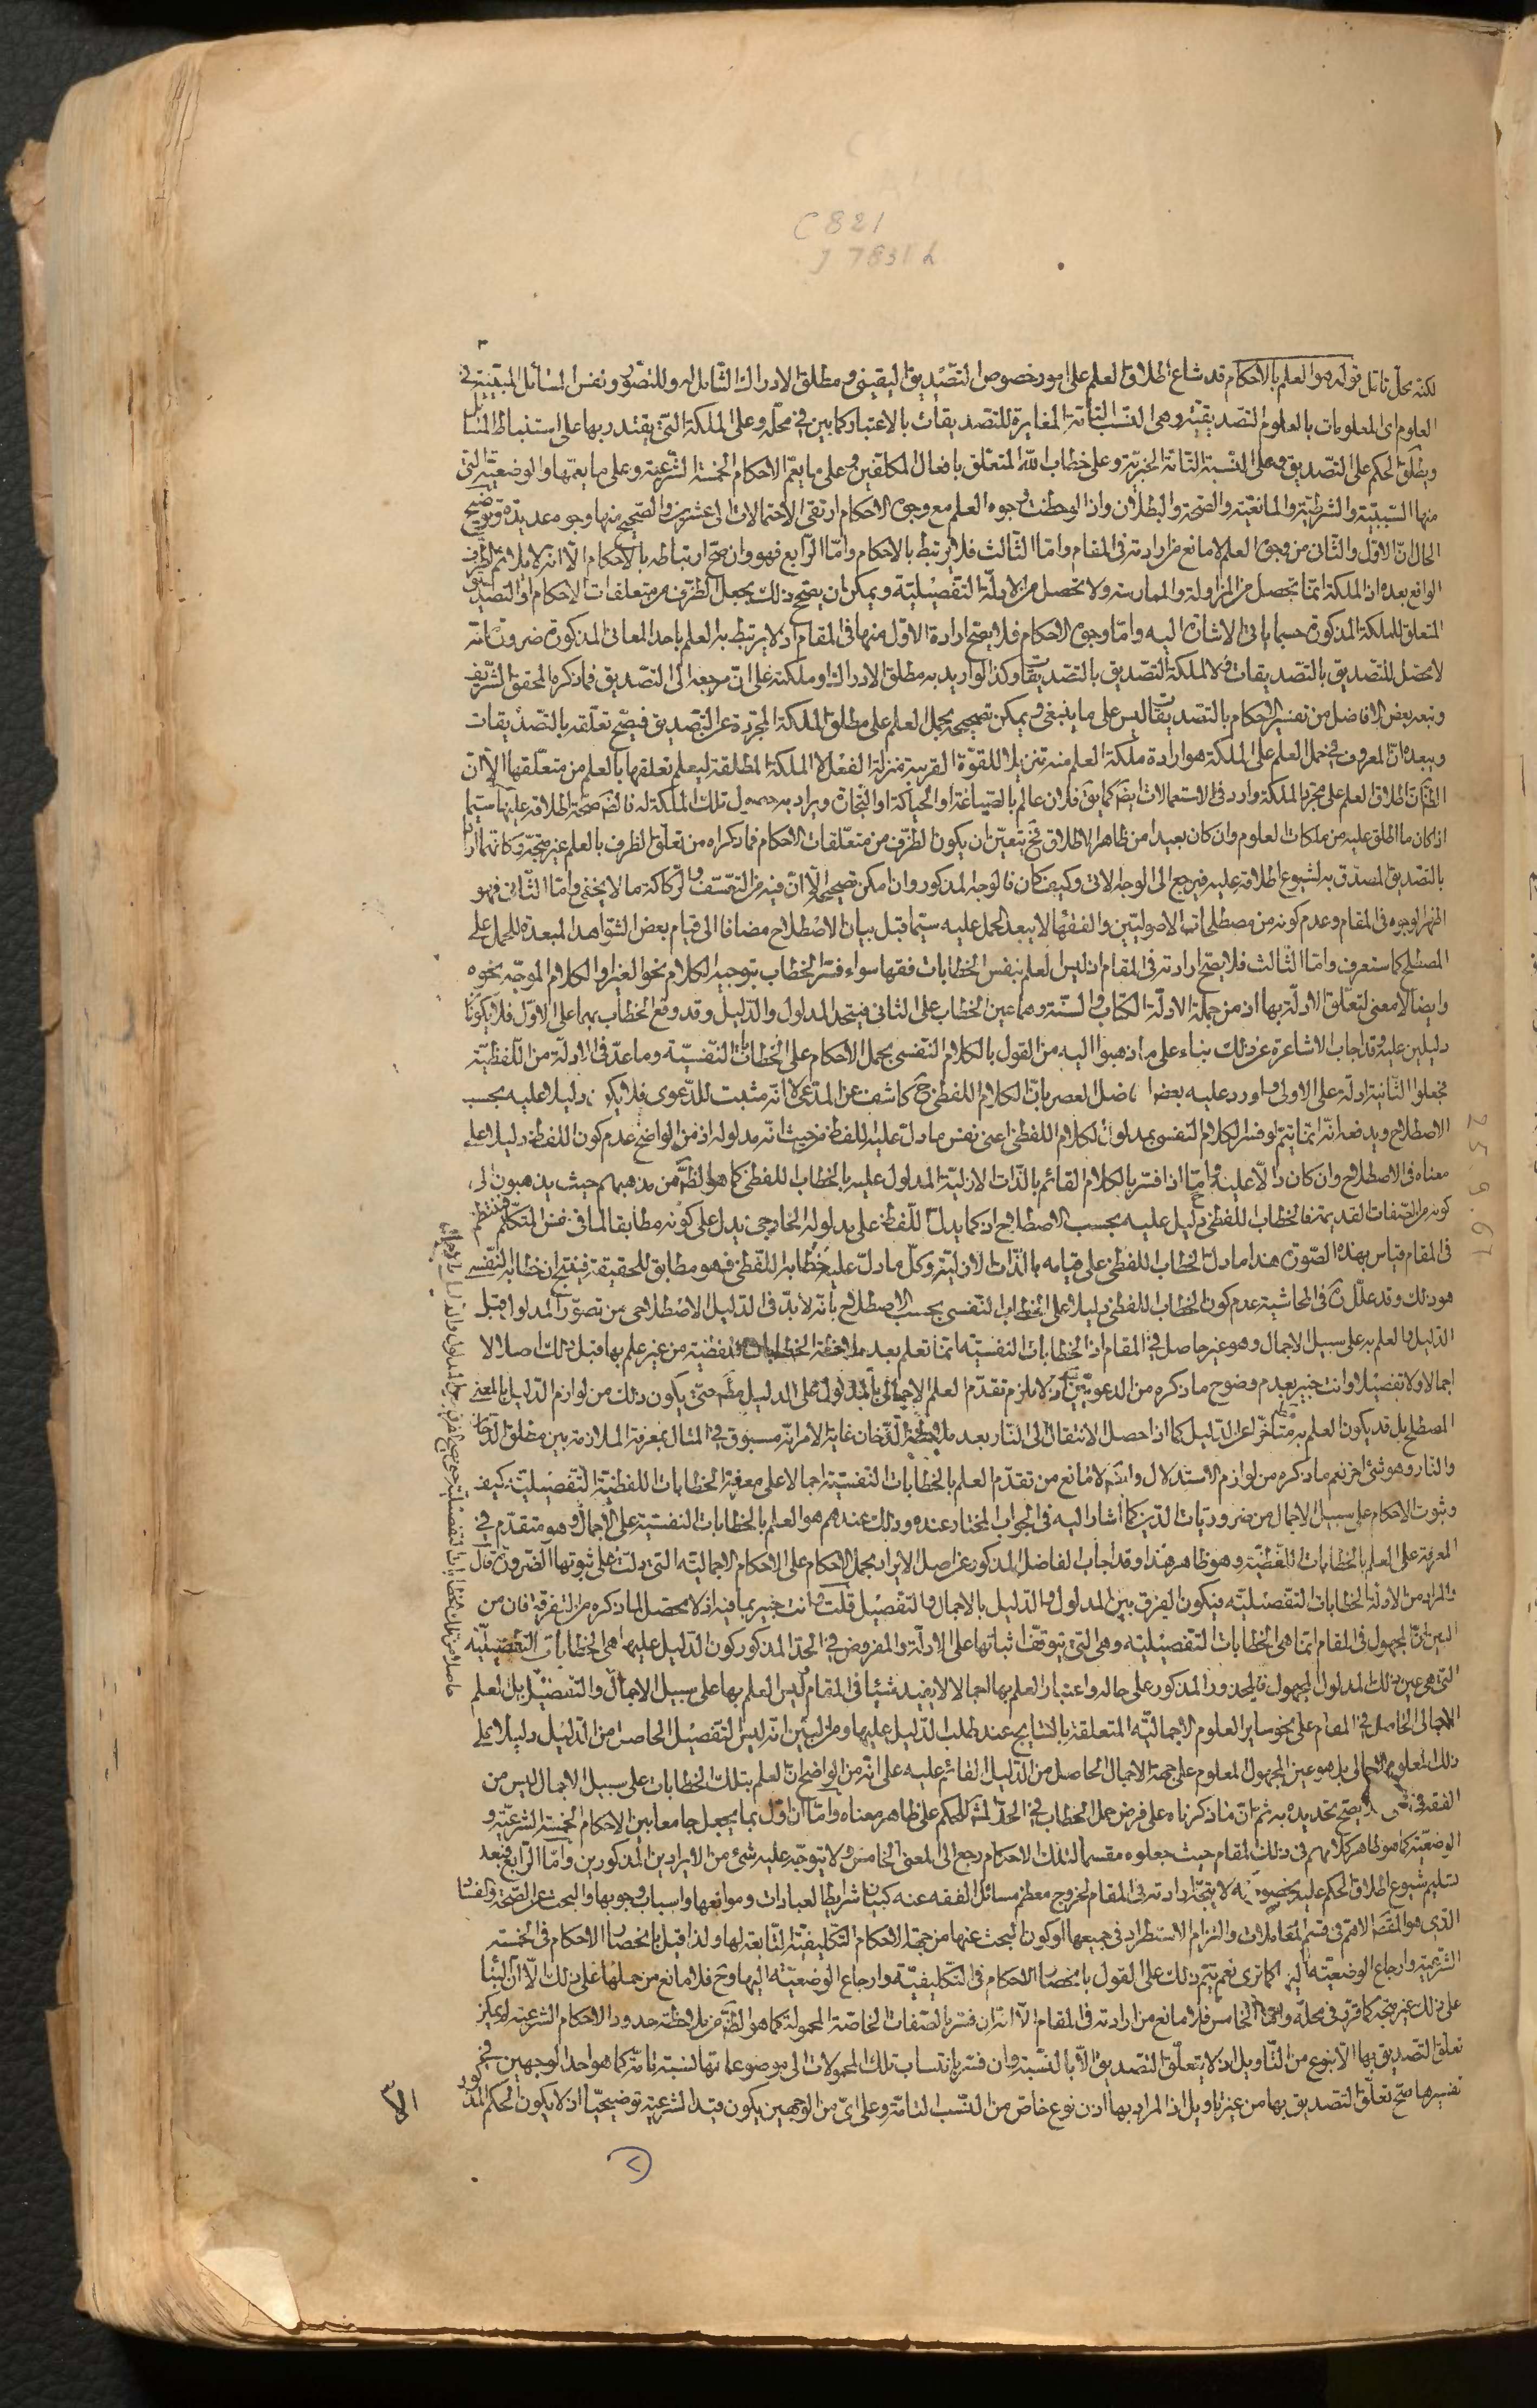 C 821
J 7831 h
لكنه محل تامّل قوله هو العلم بالاحكام قد شاع اطلاق العلم على امور خصوص التصديق اليقينى ومطلق الادراك الشامل له وللتصور ونفس المسائل المبيّنة فى
العلوم اى المعلومات بالعلوم التصديقيّة وهى النسب التامّة المغايرة للتصديقات بالاعتبار كما بين فى محلّه وعلى الملكة التى يقتدر بها على استنباط المسائل
ويطلق الحكم على التصديق وعلى النسبة التامّة الخبريّة وعلى خطاب الله المتعلق بافعال المكلّفين وعلى ما يعمّ الاحكام الخمسة الشرعيّة وعلى ما يعمّها والوضعيّة التى
منها السببيّة والشرطيّة والمانعيّة والصحة والبطلان واذا لوحظت وجوه العلم مع وجوه الاحكام ارتقى الاحتمالات الى عشرين والصحيح منها وجوه عديدة وتوضيح
الحال انّ الاوّل والثانى من وجوه العلم لا مانع من ارادته فى المقام وامّا الثالث فلا يرتبط بالاحكام وامّا الرابع فهو وان صحّ ارتباطه بالاحكام الّا انّه لا يلائم الظرف
الواقع بعده اذ الملكة انّما يحصل من المزاولة والممارسة ولا تحصل من الادلّة التفصيليّة ويمكن ان يصحّ ذلك بجعل الظرف من متعلقات الاحكام او التصديق
المتعلق للملكة المذكورة حسبما ياتى الاشارة اليه وامّا وجوه الاحكام فلا يصحّ ارادة الاوّل منها فى المقام اذ لا يرتبط به العلم باحد المعانى المذكورة ضرورة انّه
لا محصّل للتصديق بالتصديقات ولا لملكة التصديق بالتصديقات وكذا لو اريد به مطلق الادراك او ملكته على انّ مرجعه الى التصديق فما ذكره المحقق الشريف
وتبعه بعض الافاضل من تفسير الاحكام بالتصديقات ليس على ما ينبغى ويمكن تصحيحه بحمل العلم على مطلق الملكة المجرّدة عن التصديق فيصحّ تعلّقه بالتصديقات
ويبعده انّ المعروف فى حمل العلم على الملكة هو ارادة ملكة العلم منه تنزيلا للقوّة القريبة منزلة الفعل لا الملكة المطلقة ليعلم تعلقها بالعلم من متعلّقها الّا انّ
الظّ انّ اطلاق العلم على مجرد الملكة وارد فى الاستعمالات ايضا كما يقّ فلان عالم بالصياغة او الحياكة او النجارة ويراد به حصول تلك الملكة له فالظّ صحّة اطلاقه عليها سيّما
اذا كان ما اطلق عليه من ملكات العلوم وان كان بعيدا من ظاهر الاطلاق فح يتعيّن ان يكون الظرف من متعلّقات الاحكام فما ذكراه من تعلّق الظرف بالعلم غير متّجه وكانّهما ارادا
بالتصديق المصدّق به لشيوع اطلاقه عليه فيرجع الى الوجه الآتى وكيف كان فالوجه المذكور وان امكن تصحيحه الّا انّ فيه من التعسّف والركاكة ما لا يخفى وامّا الثانى فهو
اظهر الوجوه فى المقام وعدم كونه من مصطلحات الاصوليّين والفقهاء لا يبعد الحمل عليه سيّما قبل بيان الاصطلاح مضافا الى قيام بعض الشواهد المبعدة للحمل على
المصطلح كما ستعرف وامّا الثالث فلا يصحّ ارادته فى المقام اذ ليس العلم بنفس الخطابات فقها سواء فسّر الخطاب بتوجيه الكلام نحو الغير او الكلام الموجّه نحوه
وايضا لا معنى لتعلّق الادلّة بها اذ من جملة الادلّة الكتاب والسنّة وهما عين الخطاب على الثانى فيتّحد المدلول والدليل وقد وقع الخطاب بهما على الاوّل فلا يكونان
دليلين عليه وقد اجاب الاشاعرة عن ذلك بناء على ما ذهبوا اليه من القول بالكلام النفسى بحمل الاحكام على الخطابات النفسيّة وما عدّ فى الادلّة من اللّفظيّة
فجعلوا الثانية ادلّة على الاولى واورد عليه بعض افاضل العصر بانّ الكلام اللفظى ح كاشف عن المدّعى لا انّه مثبت للدّعوى فلا يكون دليلا عليه بحسب
الاصطلاح ويدفعه انّه انّما يتمّ لو فسّر الكلام النفسى بمدلول الكلام اللفظى اعنى نفس ما دلّ عليه اللفظ من حيث انّه مدلوله اذ من الواضح عدم كون اللفظ دليلا على
معناه فى الاصطلاح وان كان دالّا عليه وامّا اذا فسّر بالكلام القائم بالذّات الازليّة المدلول عليه بالخطاب اللفظى كما هو الظّ من مذهبهم حيث يذهبون الى
كونه من الصفات القديمة فالخطاب اللفظى دليل عليه بحسب الاصطلاح اذ كما يدلّ اللفظ على مدلوله الخارجى يدلّ على كونه مطابقا لما فى نفس المتكلّم فينتظم
فى المقام قياس بهذه الصورة هذا ما دلّ الخطاب اللفظى على قيامه بالذّات الازليّة وكلّ ما دلّ عليه خطابه اللّفظى فهو مطابق للحقيقة فينتج ان خطابه النفسى
هو ذلك وقد علّل ره فى الحاشية عدم كون الخطاب اللفظى دليلا على الخطاب النفسى بحسب الاصطلاح بانّه لا بدّ فى الدليل الاصطلاحى من تصوّر المدلول قبل
الدليل والعلم به على سبيل الاجمال وهو غير حاصل فى المقام اذ الخطابات النفسيّة انّما تعلم بعد ملاحظة الخطابات اللفظيّة من غير علم بها قبل ذلك اصلا لا
اجمالا ولا تفصيلا وانت خبير بعدم وضوح ما ذكره من الدعويين اذ لا يلزم تقدّم العلم الاجمالى بالمدلول على الدليل مطّ حتى يكون ذلك من لوازم الدليل بالمعنى
المصطلح بل قد يكون العلم به متاخّرا عن الدليل كما اذا حصل الانتقال الى النار بعد ملاحظة الدّخان غاية الامر انّه مسبوق فى المثال بمعرفة الملازمة بين مطلق الدخان
والنار وهو شئ اخر نعم ما ذكره من لوازم الاستدلال وايضا لا مانع من تقدّم العلم بالخطابات النفسيّة اجمالا على معرفة الخطابات اللفظيّة التفصيليّة كيف
وثبوت الاحكام على سبيل الاجمال من ضروريّات الدين كما اشار اليه فى الجواب المختار عنده وذلك عندهم هو العلم بالخطابات النفسيّة على الاجمال وهو متقدّم فى
المعرفة على العلم بالخطابات اللفظيّة وهو ظاهر هذا وقد اجاب الفاضل المذكور عن اصل الايراد بحمل الاحكام على الاحكام الاجماليّة التى دلّت على ثبوتها الضرورة قال
والمراد من الادلّة الخطابات التفصيليّة فيكون الفرق بين المدلول والدليل بالاجمال والتفصيل قلت وانت خبير بما فيه اذ لا محصّل لما ذكره من التفرقة فان من
البيّن انّ المجهول فى المقام انّما هى الخطابات التفصيليّة وهى التى يتوقّف اثباتها على الادلّة والمفروض فى الحدّ المذكور كون الدليل عليها هى الخطابات التفصيليّة
التى هى عين ذلك المدلول المجهول فالمحذور المذكور على حاله واعتبار العلم بها اجمالا لا يفيد شيئا فى المقام وليس العلم بها على سبيل الاجمال والتفصيل بل العلم
الاجمالى الحاصل فى المقام على نحو ساير العلوم الاجماليّة المتعلقة بالنتايج عند طلب الدليل عليها ومن البيّن انّه ليس التفصيل الحاصل من الدليل دليلا على
ذلك المعلوم الاجمالى بل هو عين المجهول المعلوم على جهة الاجمال الحاصل من الدليل القائم عليه على انّه من الواضح انّ العلم بتلك الخطابات على سبيل الاجمال ليس من
الفقه فى شئ فلا يصحّ تحديده به ثم انّ ما ذكرناه على فرض حمل الخطاب فى الحدّ المشهور للحكم على ظاهر معناه وامّا ان اوّل بما يجعل جامعا بين الاحكام الخمسة الشرعيّة و
الوضعيّة كما هو ظاهر كلامهم فى ذلك المقام حيث جعلوه مقسما لتلك الاحكام رجع الى المعنى الخامس ولا يتوجّه عليه شئ من الايرادين المذكورين وامّا الرابع فبعد
تسليم شيوع اطلاق الحكم عليه بخصوصه لا يتّجه ارادته فى المقام لخروج معظم مسائل الفقه عنه كبيان شرايط العبادات وموانعها واسباب وجوبها والبحث عن الصحّة والفساد
الّذى هو المقصد الاهمّ فى قسم المعاملات والتزام الاستطراد فى جميعها او كون البحث عنها من جهة الاحكام التكليفيّة التابعة لها ولذا قيل بانحصار الاحكام فى الخمسة
الشرعيّة وارجاع الوضعيّة اليها كما ترى نعم يتمّ ذلك على القول بانحصار الاحكام فى التكليفيّة وارجاع الوضعيّة اليها وح فلا مانع من حملها على ذلك الّا انّ البناء
على ذلك غير متّجه كما قرّر فى محلّه وامّا الخامس فلا مانع من ارادته فى المقام الّا انّه ان فسّر بالصفات الخاصّة المحمولة كما هو الظّ من ملاحظة حدود الاحكام الشرعيّة لم يمكن
تعلّق التصديق بها الّا بنوع من التاويل اذ لا يتعلّق التصديق الّا بالنسبة وان فسّر بانتساب تلك المحمولات الى موضوعاتها نسبة تامّة كما هو احد الوجهين فى
تفسيرها صحّ تعلّق التصديق بها من غير تاويل اذ المراد بها اذن نوع خاصّ من النسب التامّة وعلى اىّ من الوجهين يكون قيد الشرعيّة توضيحيّا اذ لا يكون الحكم المذكور
الا
25.9.61